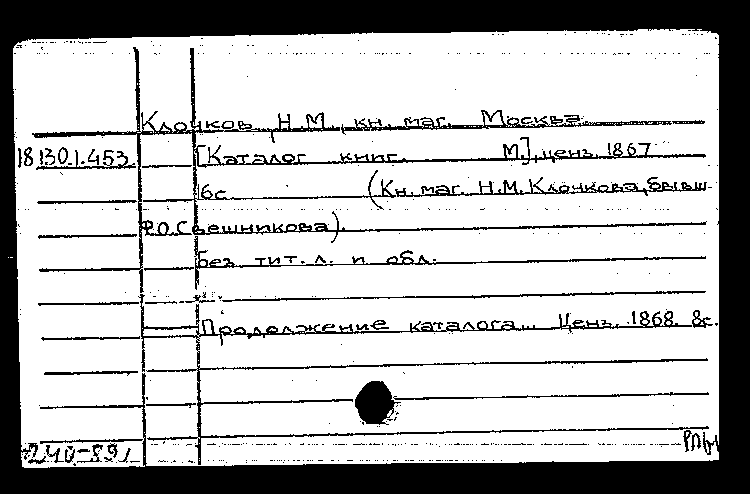 Клочков, Н.М., кн. маг. Москва.
18.130.1.453 [Каталог книг. М.], ценз. 1867
16с. (Кн. маг. Н.М. Клочкова, бывш.
Ф.О. Свешникова).
Без тит. л. и обл.
Продолжение каталога... Ценз. 1868. 8с.
240-89